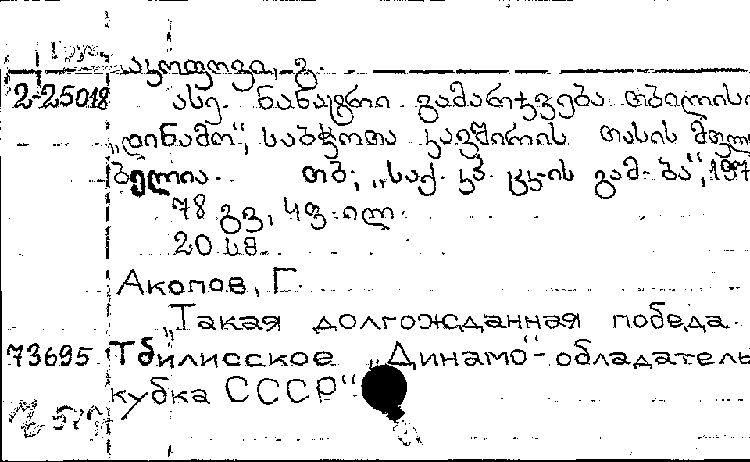 Груз.
აკოფოვი, გ.
2-25018 ასე ნანატრი გამარჯვება. თბილისი
„დინამო“, საბჭოთა კავშირის თასის მფლო
ბელია. თბ., „საქ. კპ ცკ-ის გამ-ბა“, 197
78 გვ, 4 ფ. ილ.
20 სმ.
Акопов, Г.
„Такая долгожданная победа.
73695 Тбилисское „Динамо“-обладатель
кубка СССР“